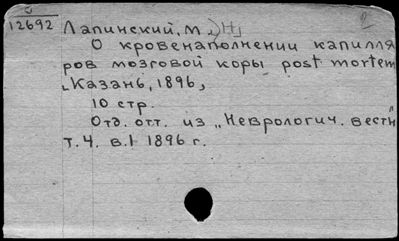 12692 Лапинский, М. Н.
О кровенаполнении капилля
ров мозговой коры post mortem
Казань, 1896,
10 стр.
Отд. отт. из „Неврологич. вестн"
т. 4. в. 1 1896 г.